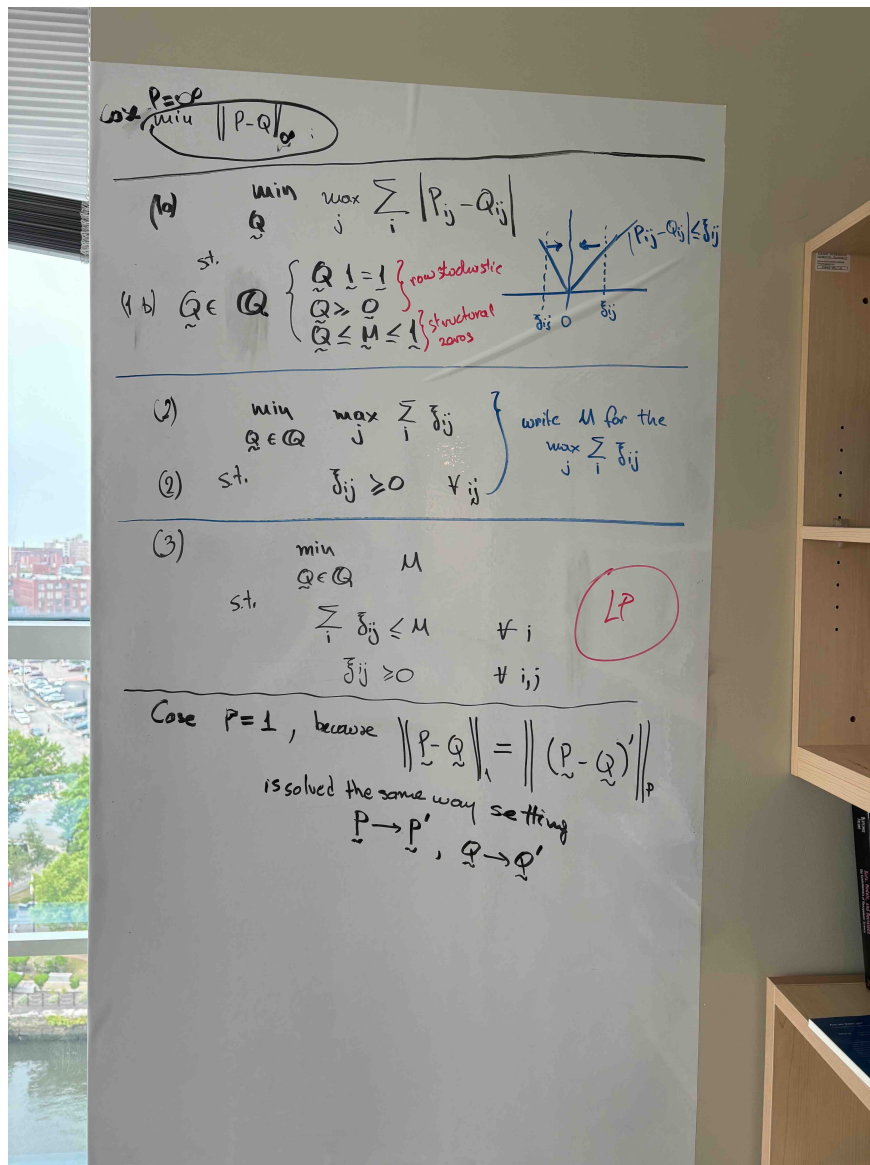 Case P=∞
min ‖P-Q‖∞ .
(1a) min Q max j ∑ i |Pij - Qij|
st.
(1b) Q ∈ ℚ { Q 1 = 1 } row stochastic
Q ≥ 0
Q ≤ M ≤ 1 } structural zeros
|Pij - Qij| ≤ ξij
ξij 0 ξij
(2) min Q ∈ ℚ max j ∑ i ξij
(2) s.t. ξij ≥ 0 ∀ ij
write M for the
max j ∑ i ξij
(3) min Q ∈ ℚ M
s.t.
∑ i ξij ≤ M ∀ i
ξij ≥ 0 ∀ i,j
LP
Case P=1, because ‖P-Q‖1 = ‖(P-Q)'‖P
is solved the same way setting
P → P', Q → Q'